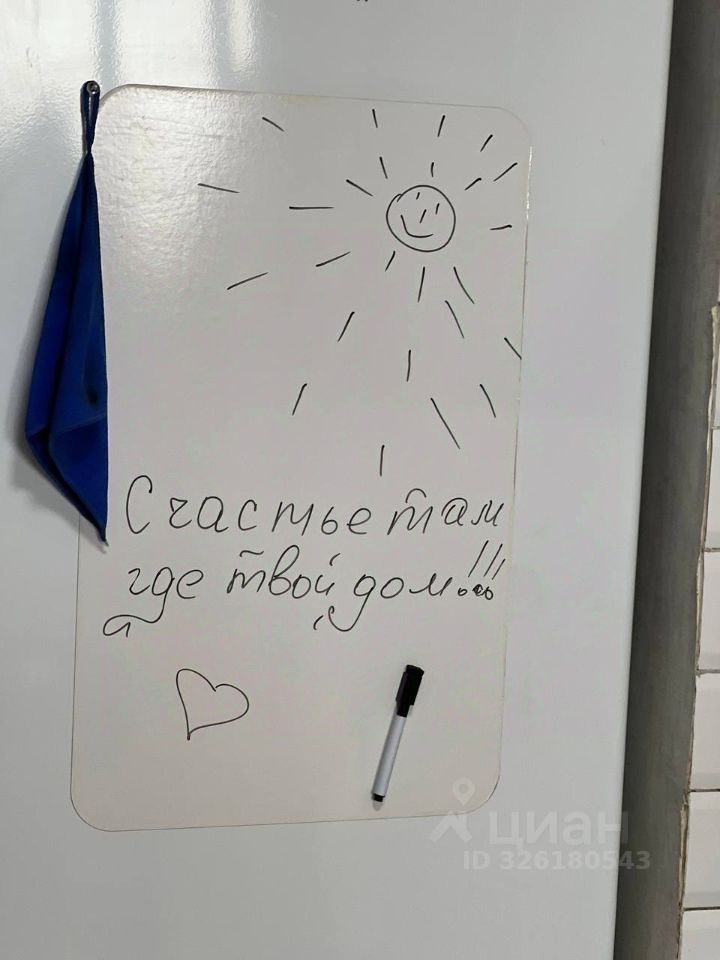 Счастье там
где твой дом!!!
циан
ID 326180543